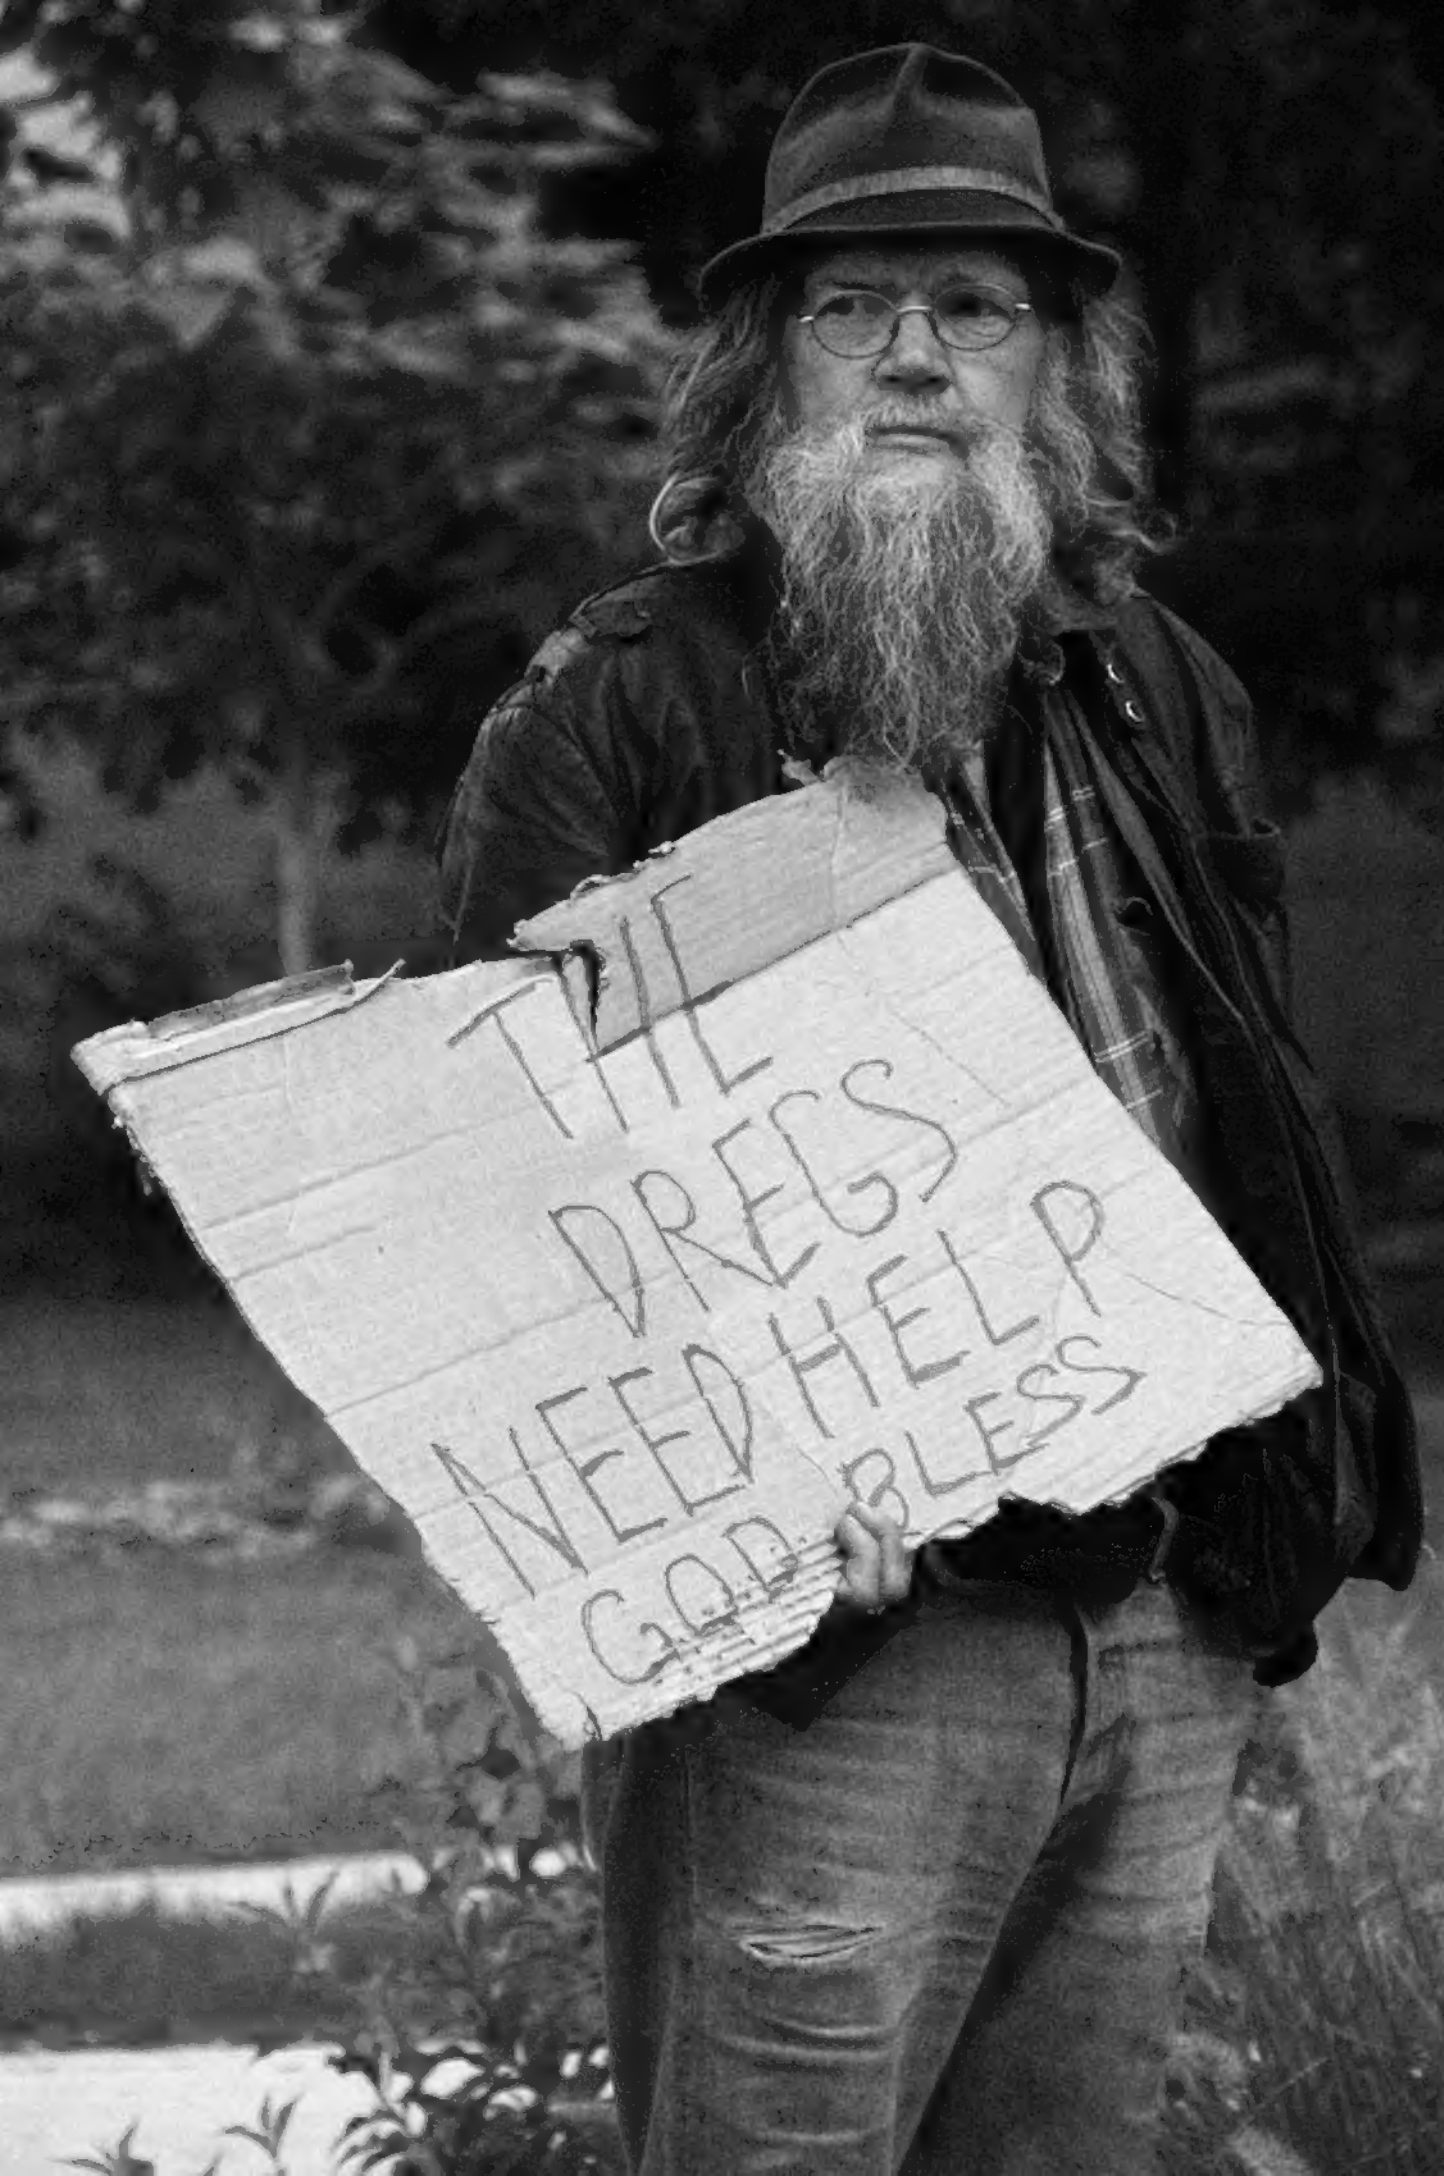 THE
DREGS
NEED HELP
GOD BLESS